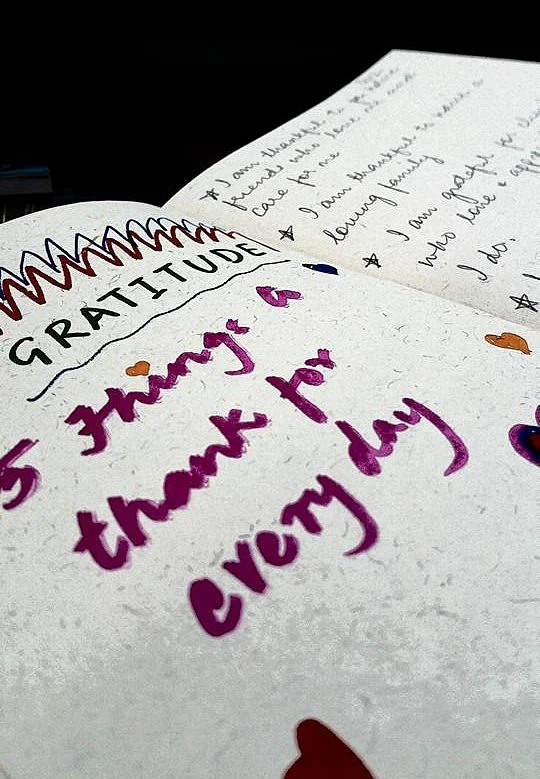 GRATITUDE
5 Things a
thank for
every day
★ I am thankful to
friends who love me and
care for me
★ I am thankful to
loving family
★ I am grateful for
who love &
I do.
★ I